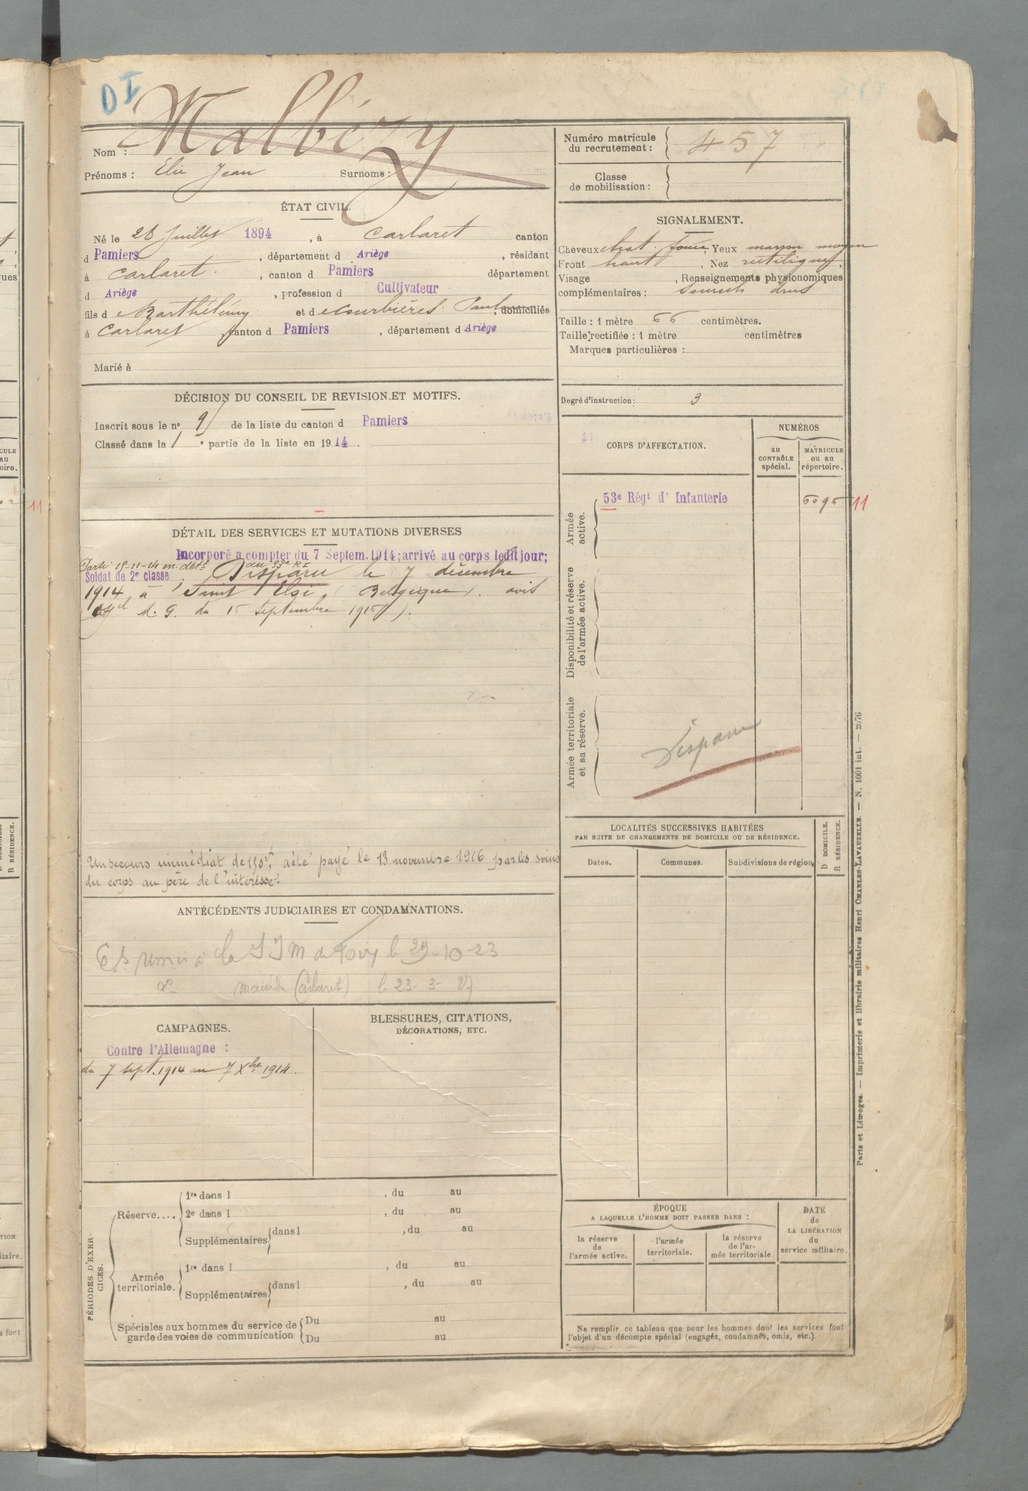 Malbézy
Nom :
Prénoms : Elie Jean Surnoms :
ÉTAT CIVIL.
Né le 28 Juillet 1894, à Carlaret canton
d Pamiers, département d Ariège, résidant
à Carlaret, canton d Pamiers département
d Ariège, profession d Cultivateur
fils d e Barthélemy et d e Courbières Paule domiciliés
à Carlaret, canton d Pamiers, département d Ariège
Marié à
DÉCISION DU CONSEIL DE REVISION ET MOTIFS.
Inscrit sous le n° 9 de la liste du canton d Pamiers
Classé dans la 1e partie de la liste en 1914.
DÉTAIL DES SERVICES ET MUTATIONS DIVERSES
Incorporé à compter du 7 Septem. 1914; arrivé au corps ledit jour;
Soldat de 2e classe. Disparu le 7 décembre
1914, à Saint Eloi (Belgique). avis
du 15 Septembre 1915).
Un secours immédiat de 150f, a été payé le 13 novembre 1916 par les soins
du corps au père de l'intéressé.
ANTÉCÉDENTS JUDICIAIRES ET CONDAMNATIONS.
le 29-10-23
(Carlaret) le 23-3-
CAMPAGNES.
Contre l'Allemagne :
du 7 sept. 1914 au 7 Xbre 1914.
BLESSURES, CITATIONS,
DÉCORATIONS, ETC.
PÉRIODES D'EXERCICES.
Réserve....
1re dans l , du au
2e dans l , du au
Supplémentaires dans l , du au
Armée territoriale.
1re dans l , du au
Supplémentaires dans l , du au
Spéciales aux hommes du service de garde des voies de communication
Du au
Du au
Numéro matricule
du recrutement : 457
Classe
de mobilisation :
SIGNALEMENT.
Cheveux chat. foncé Yeux marron moyen
Front haut, Nez rectiligne
Visage , Renseignements physionomiques
complémentaires : Sourcils drus
Taille : 1 mètre 66 centimètres.
Taille rectifiée : 1 mètre centimètres
Marques particulières :
Degré d'instruction : 3
CORPS D'AFFECTATION.
NUMÉROS
au
CONTRÔLE
spécial.
MATRICULE
ou au
répertoire.
Armée
active.
53e Régt d'Infanterie 6090 11
Disponibilité et réserve
de l'armée active.
Armée territoriale
et sa réserve.
Disparu
LOCALITÉS SUCCESSIVES HABITÉES
PAR SUITE DE CHANGEMENTS DE DOMICILE OU DE RÉSIDENCE.
Dates. Communes. Subdivisions de région.
D DOMICILE.
R RÉSIDENCE.
ÉPOQUE
A LAQUELLE L'HOMME DOIT PASSER DANS :
la réserve
de
l'armée active.
l'armée
territoriale.
la réserve
de l'ar-
mée territoriale.
DATE
de
LA LIBÉRATION
du
service militaire.
Ne remplir ce tableau que pour les hommes dont les services font
l'objet d'un décompte spécial (engagés, condamnés, omis, etc.).
Paris et Limoges. — Imprimerie et librairie militaires Henri CHARLES-LAVAUZELLE. — N. 1001 int. — 2676